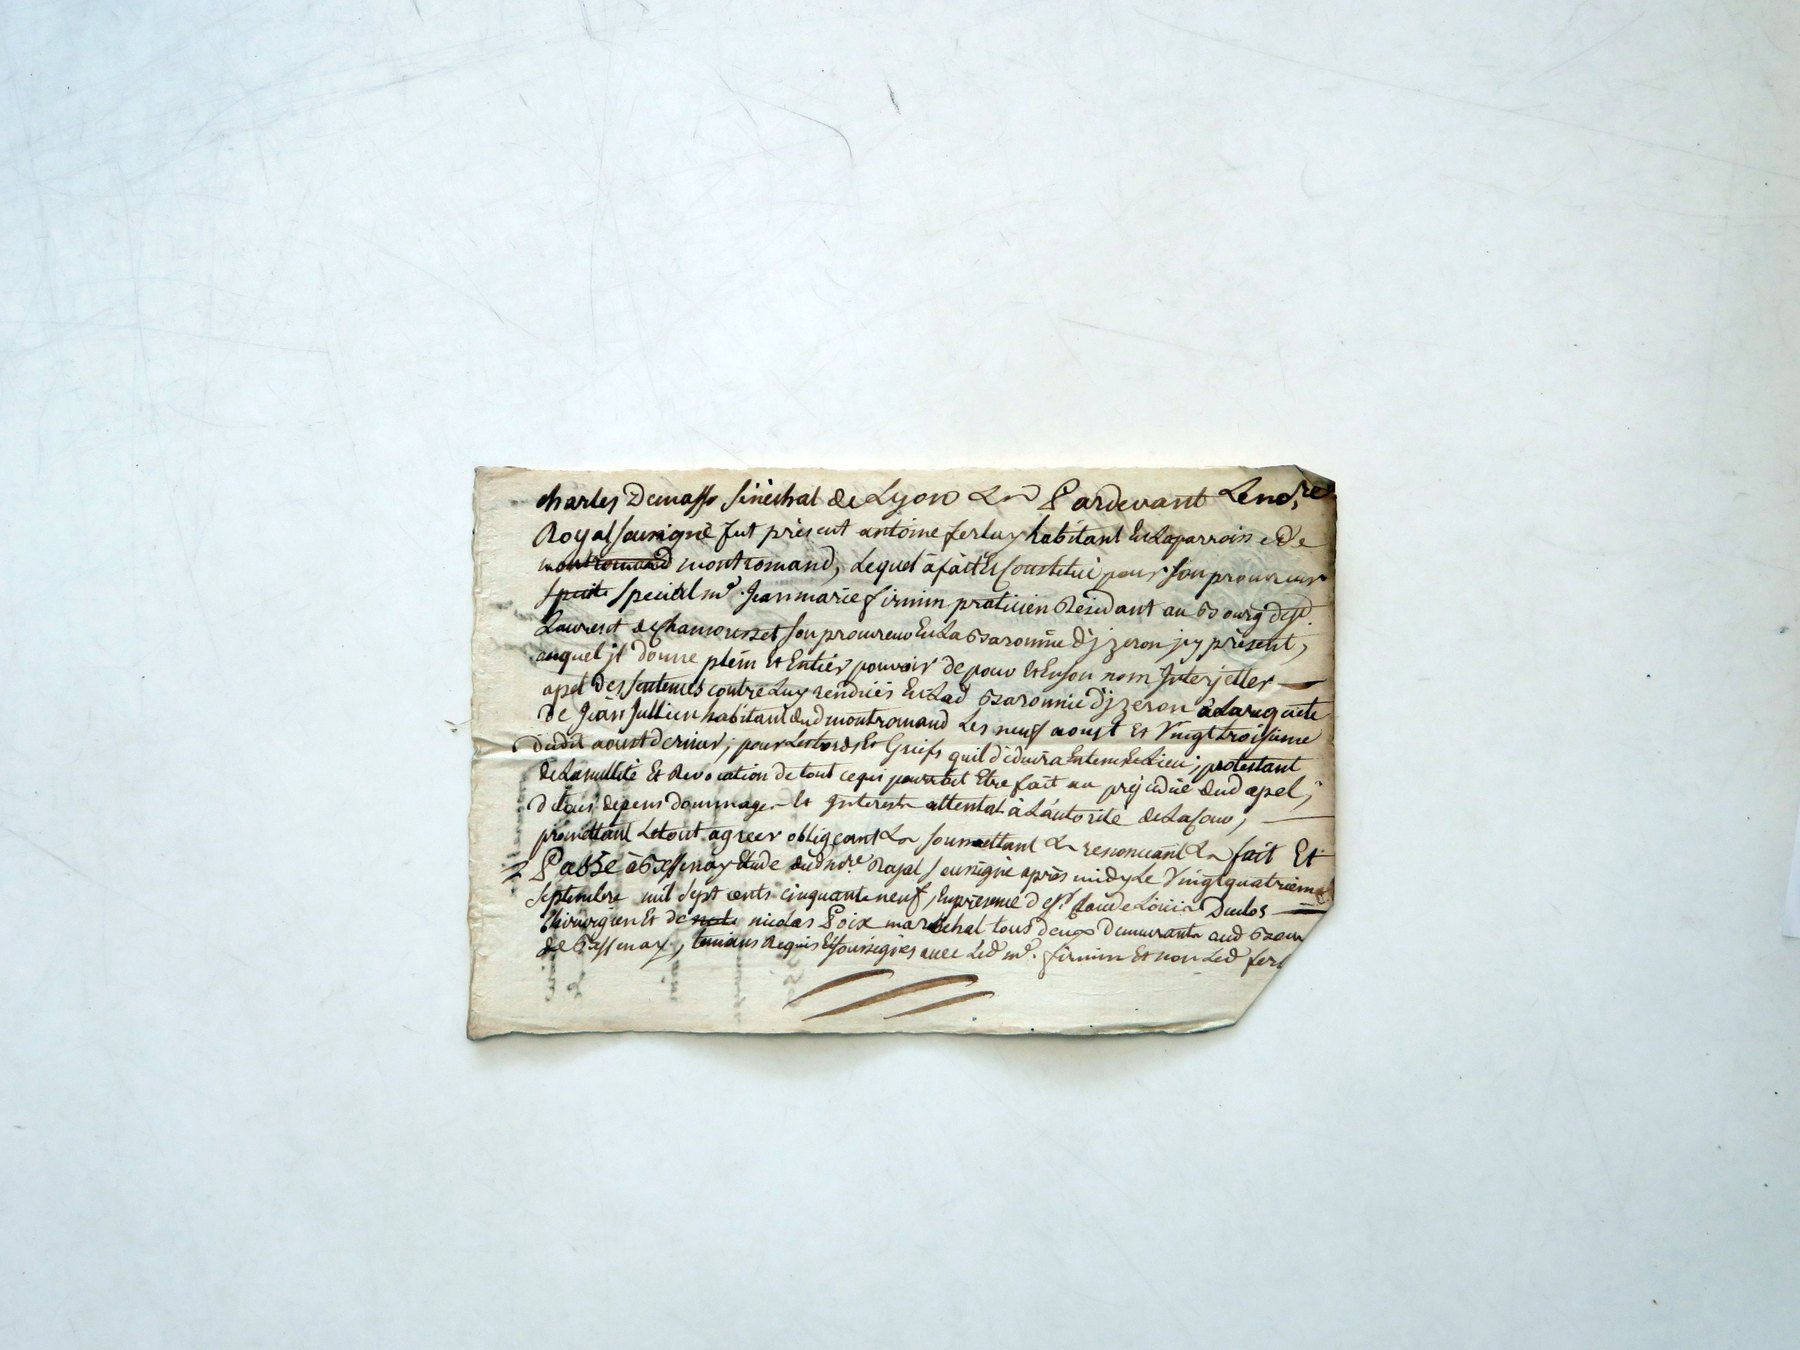 charles Demasso sénéchal de Lyon &a Pardevant Le nore
Royal soussigné fut présent antoine ferlay habitant En La parroisse de
montromand montromand, Lequel à fait et Constitué pour son procureur
speciale special me. Jean marie firmin praticien Résidant au Bourg de st.
Laurent de chamousset son procureur En La Baronnie d'jzeron jcy présent,
auquel jl donne plein et Entier pouvoir de pour et En son nom Interjetter
apel des sentences contre Luy rendües En Lad Baronnie d'jzeron à La requete
de Jean Jullien habitant dud montromand Les neuf aoust et Vingt troisieme
dudit aoust dernier; pour Les torts Et Griefs quil déduira En tems et Lieu; protestant
de La nullité Et Revocation de tout ce qui pourroit Etre fait au préjudice dud apel,
de tous depens dommages Et Interests attentat à L'autorité de La Cour,
promettant Le tout agreer obligeant &a soumettant &a renoncant &a fait Et
Passé à Bessenay Etude dud nore Royal soussigné après midy Le Vingt quatrieme
septembre mil sept cents cinquante neuf, En presence de sr. Claude Louis Duclos
chirurgien Et de nicolas Poix maréchal tous deux demeurants aud Bourg
de Bessenay, temoins Requis Et soussignés avec Led me. firmin Et non Led ferl